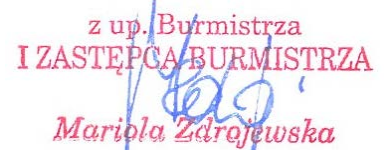 z up. Burmistrza
I ZASTĘPCA BURMISTRZA
Mariola Zdrojewska